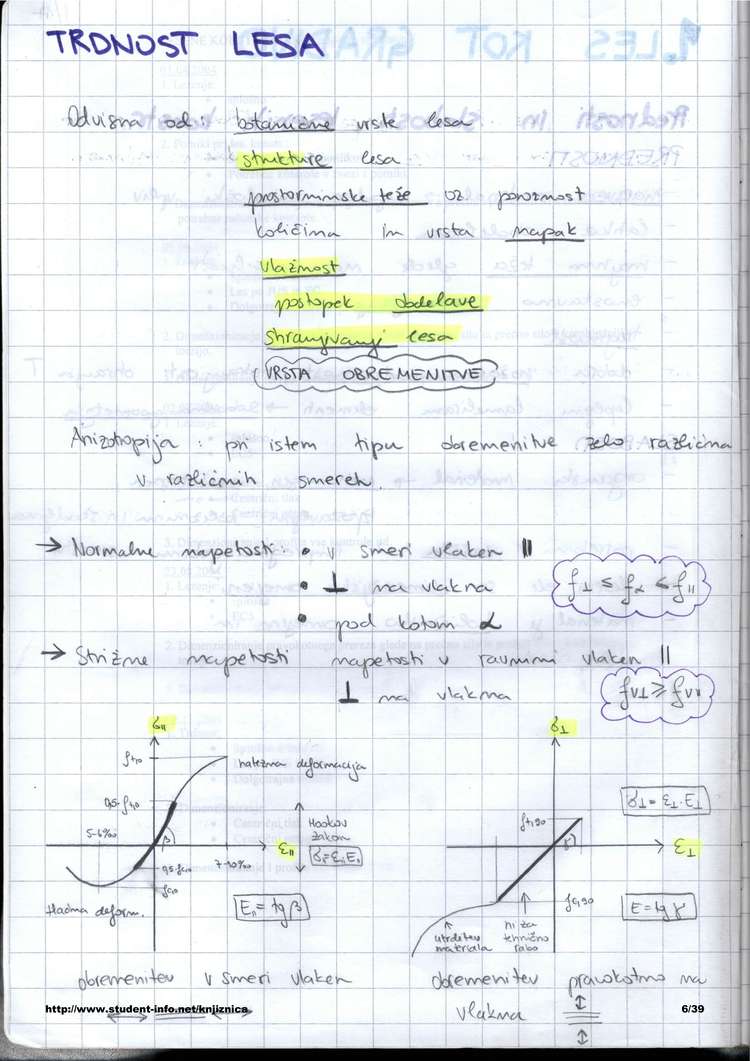 TRDNOST LESA
Odvisna od: botanične vrste lesa
strukture lesa
prostorninske teže oz poroznost
količina in vrsta napak
vlažnost
postopek obdelave
shranjivanji lesa
VRSTA OBREMENITVE
Anizotropija: pri istem tipu obremenitve zelo različna
v različnih smereh.
→ Normalne napetosti: • v smeri vlaken ||
• ⊥ na vlakna
• pod kotom α
f⊥ ≤ fα < f||
→ Strižne napetosti napetosti v ravnini vlaken ||
⊥ na vlakna
fv⊥ ≥ fv||
σ||
ft,0
natezna deformacija
0,5·ft,0
5-6‰
β
ε||
Hookov
zakon
7-10‰
0,5·fc,0
fc,0
tlačna deform.
E|| = tg β
σ⊥
σ⊥ = ε⊥·E⊥
ft,90
γ
ε⊥
fc,90
E = tg γ
utrditev
materiala
ni za
tehnično
rabo
obremenitev v smeri vlaken
obremenitev pravokotno na
vlakna
http://www.student-info.net/knjiznica
6/39